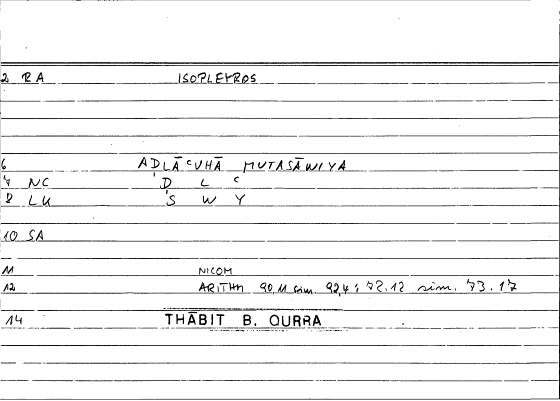 2 RA ISOPLEYROS
6 ADLĀCUHĀ MUTASĀWIYA
7 NC D L C
8 LU S W Y
10 SA
11 NICOM
12 ARITHM 90,11 sim. 92,4; 72.12 sim. 73.17
14 THĀBIT B. QURRA